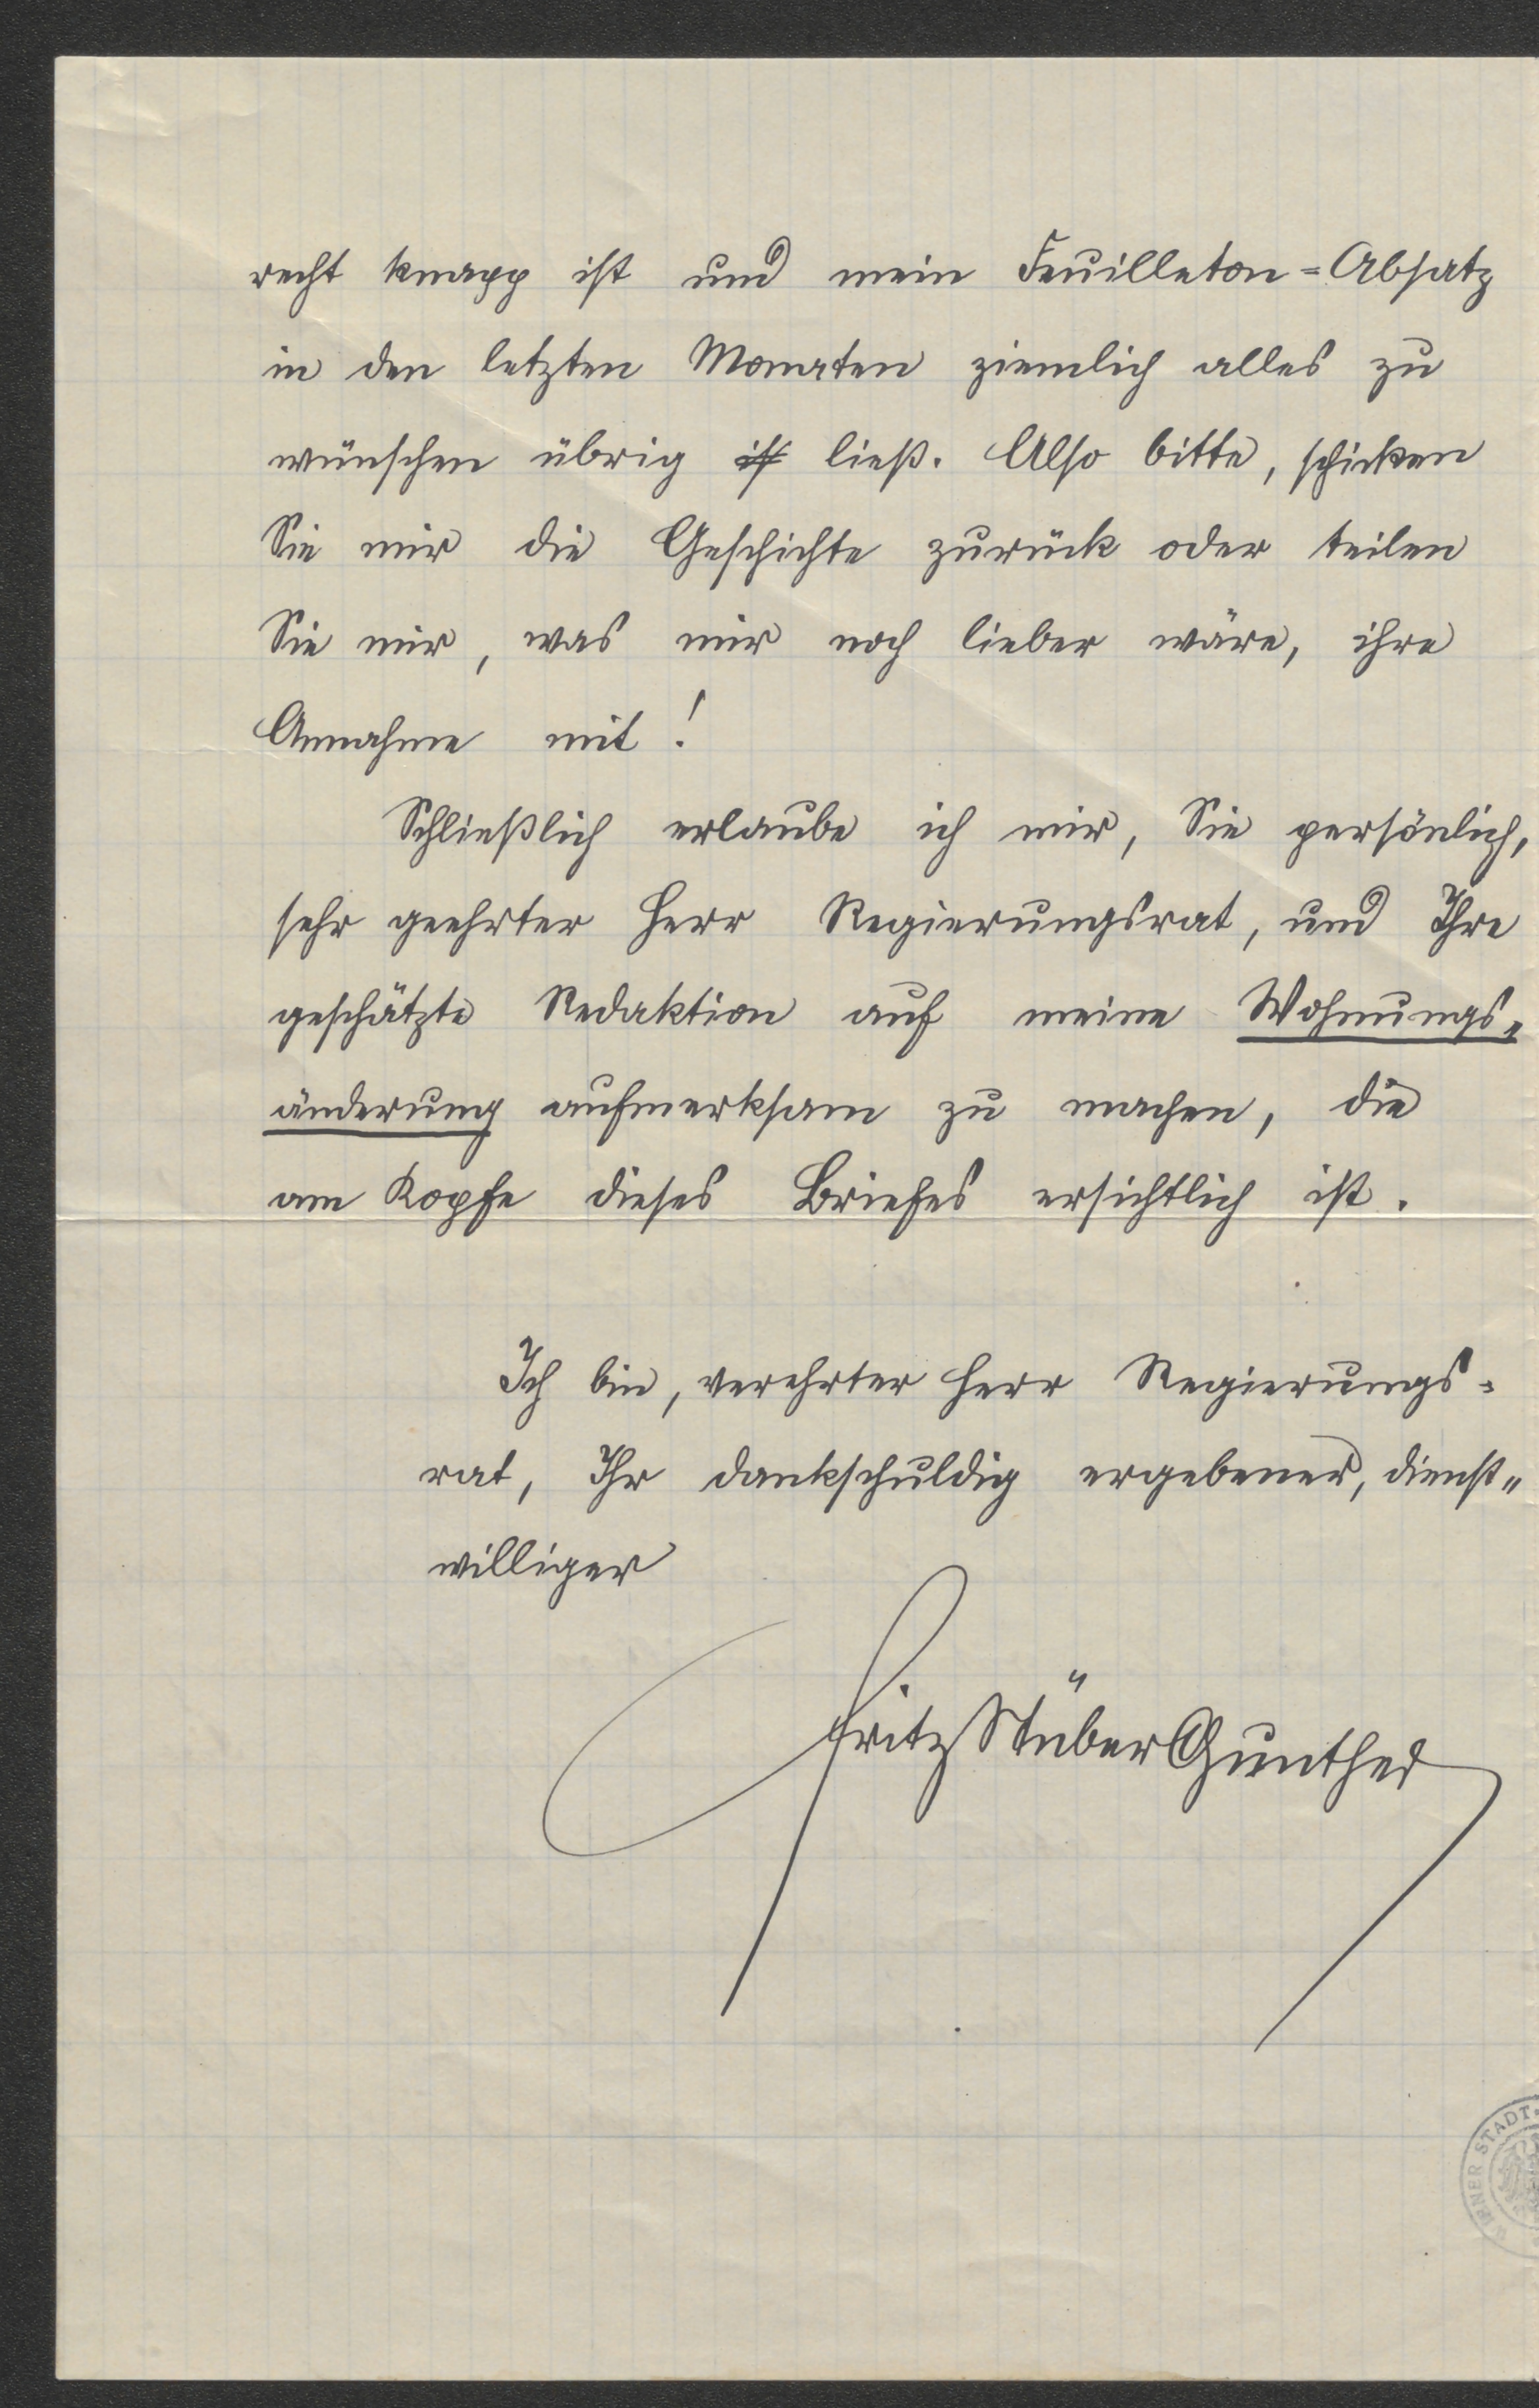 recht knapp ist und mein Feuilleton=Absatz
in den letzten Monaten ziemlich alles zu
wünschen übrig ist ließ. Also bitte, schicken
Sie mir die Geschichte zurück oder teilen
Sie mir, was mir noch lieber wäre, ihre
Annahme mit!
Schließlich erlaube ich mir, Sie persönlich,
sehr geehrter Herr Regierungsrat, und Ihre
geschätzte Redaktion auf meine Wohnungs=
änderung aufmerksam zu machen, die
am Kopfe dieses Briefes ersichtlich ist.
Ich bin, verehrter Herr Regierungs=
rat, Ihr dankschuldig ergebener, dienst=
williger
Fritz Stüber Gunther
WIENER STADT-